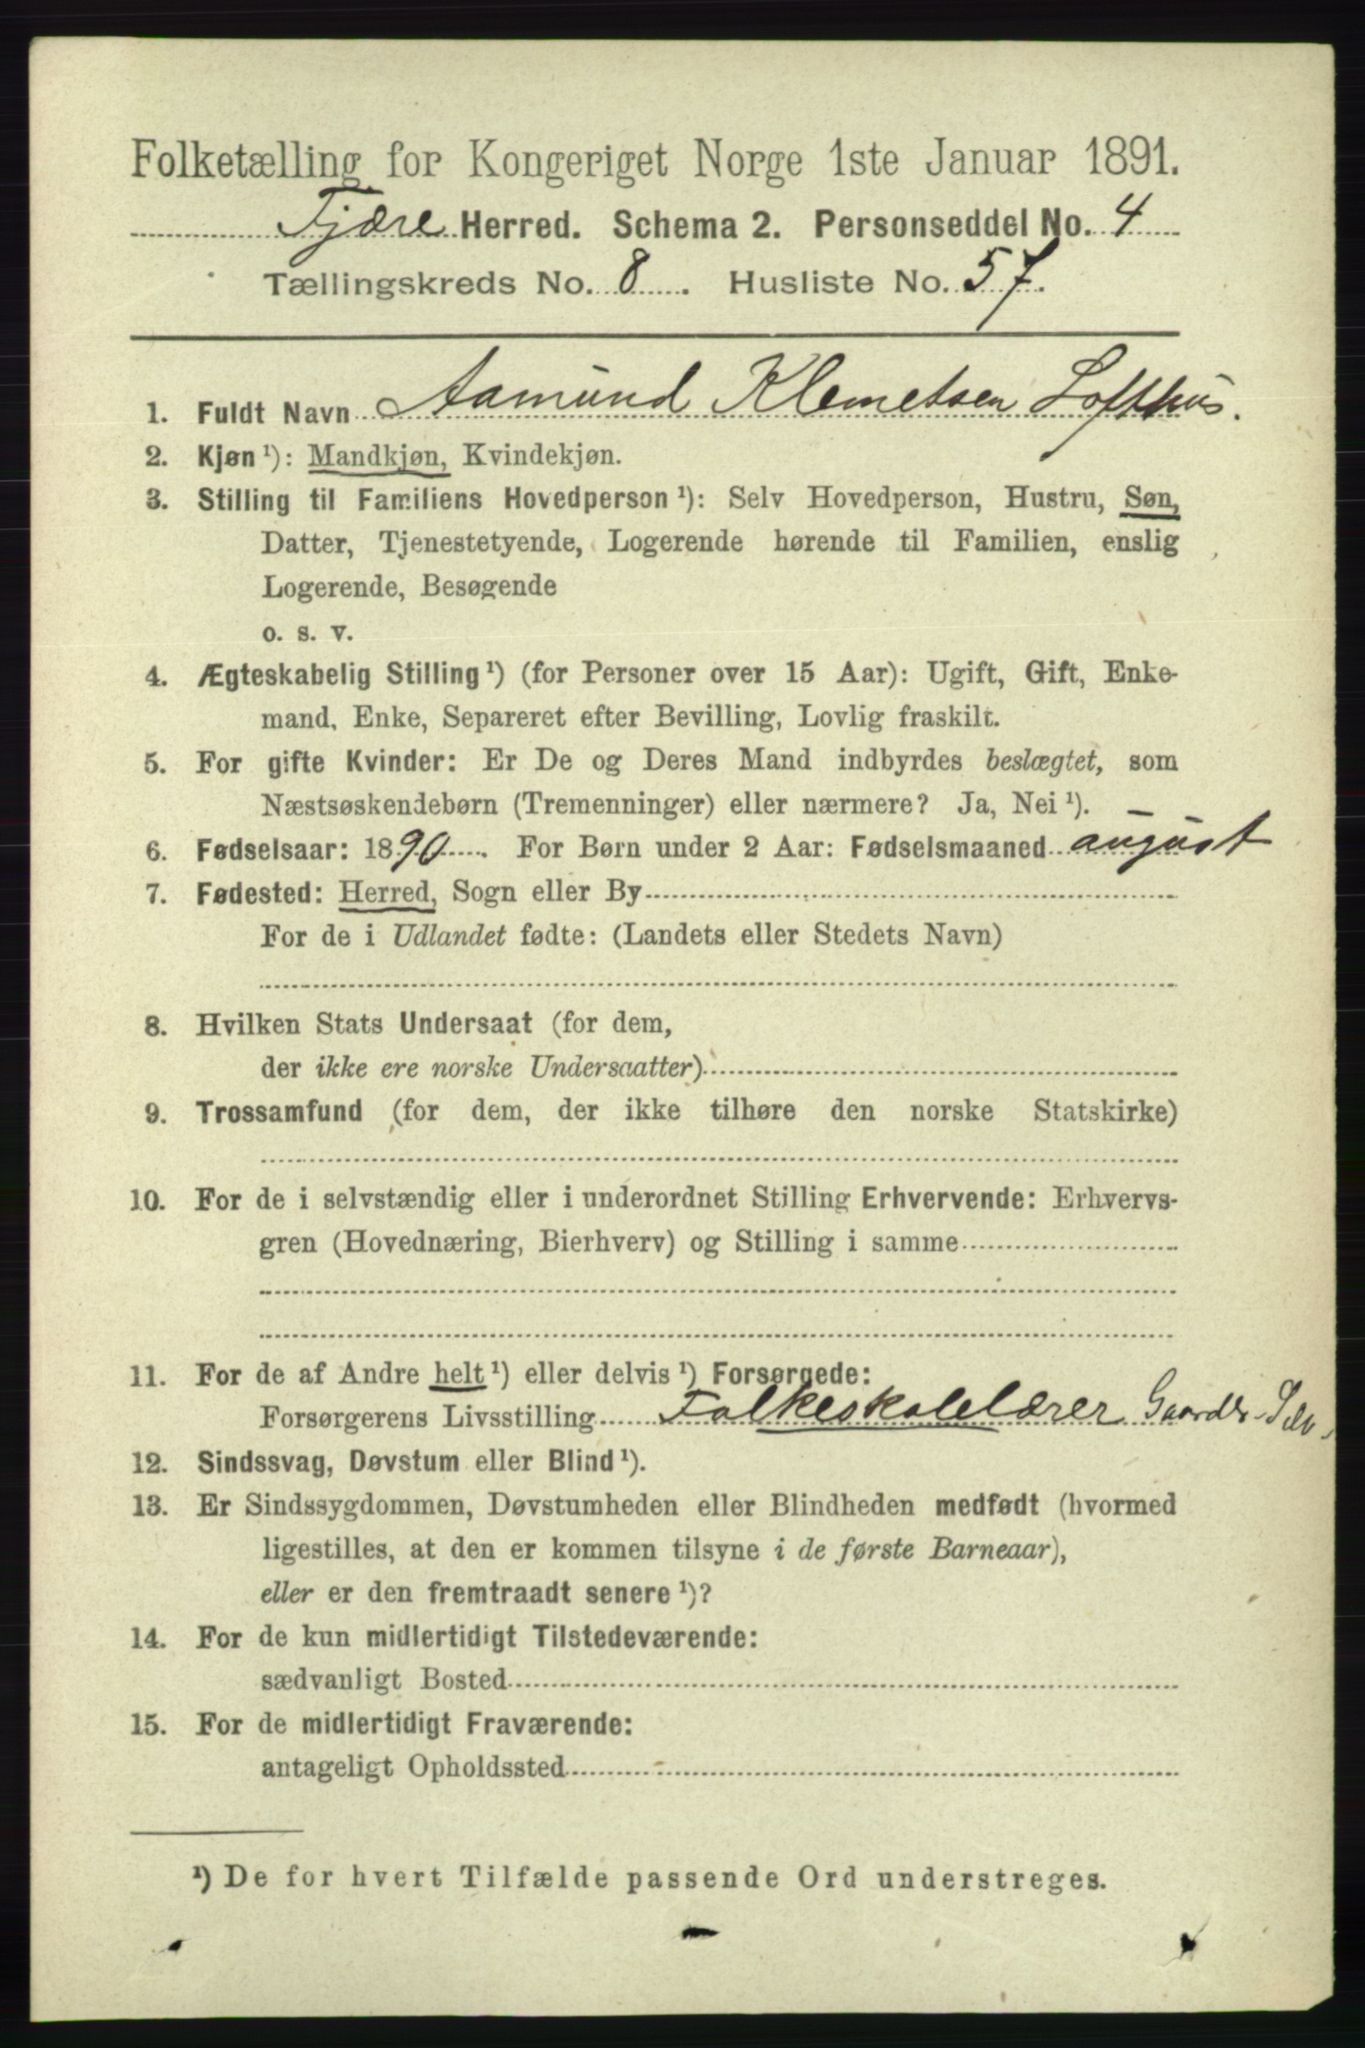 Folketælling for Kongeriget Norge 1ste Januar 1891.
Fjære Herred. Schema 2. Personseddel No. 4
Tællingskreds No. 8. Husliste No. 57.
1. Fuldt Navn Aamund Klemetsen Lofthus.
2. Kjøn ¹): Mandkjøn, Kvindekjøn.
3. Stilling til Familiens Hovedperson ¹): Selv Hovedperson, Hustru, Søn,
Datter, Tjenestetyende, Logerende hørende til Familien, enslig
Logerende, Besøgende
o. s. v.
4. Ægteskabelig Stilling ¹) (for Personer over 15 Aar): Ugift, Gift, Enke-
mand, Enke, Separeret efter Bevilling, Lovlig fraskilt.
5. For gifte Kvinder: Er De og Deres Mand indbyrdes beslægtet, som
Næstsøskendebørn (Tremenninger) eller nærmere? Ja, Nei ¹).
6. Fødselsaar: 1890. For Børn under 2 Aar: Fødselsmaaned august
7. Fødested: Herred, Sogn eller By
For de i Udlandet fødte: (Landets eller Stedets Navn)
8. Hvilken Stats Undersaat (for dem,
der ikke ere norske Undersaatter)
9. Trossamfund (for dem, der ikke tilhøre den norske Statskirke)
10. For de i selvstændig eller i underordnet Stilling Erhvervende: Erhvervs-
gren (Hovednæring, Bierhverv) og Stilling i samme
11. For de af Andre helt ¹) eller delvis ¹) Forsørgede:
Forsørgerens Livsstilling Folkeskolelærer
12. Sindssvag, Døvstum eller Blind ¹).
13. Er Sindssygdommen, Døvstumheden eller Blindheden medfødt (hvormed
ligestilles, at den er kommen tilsyne i de første Barneaar),
eller er den fremtraadt senere ¹)?
14. For de kun midlertidigt Tilstedeværende:
sædvanligt Bosted
15. For de midlertidigt Fraværende:
antageligt Opholdssted
¹) De for hvert Tilfælde passende Ord understreges.